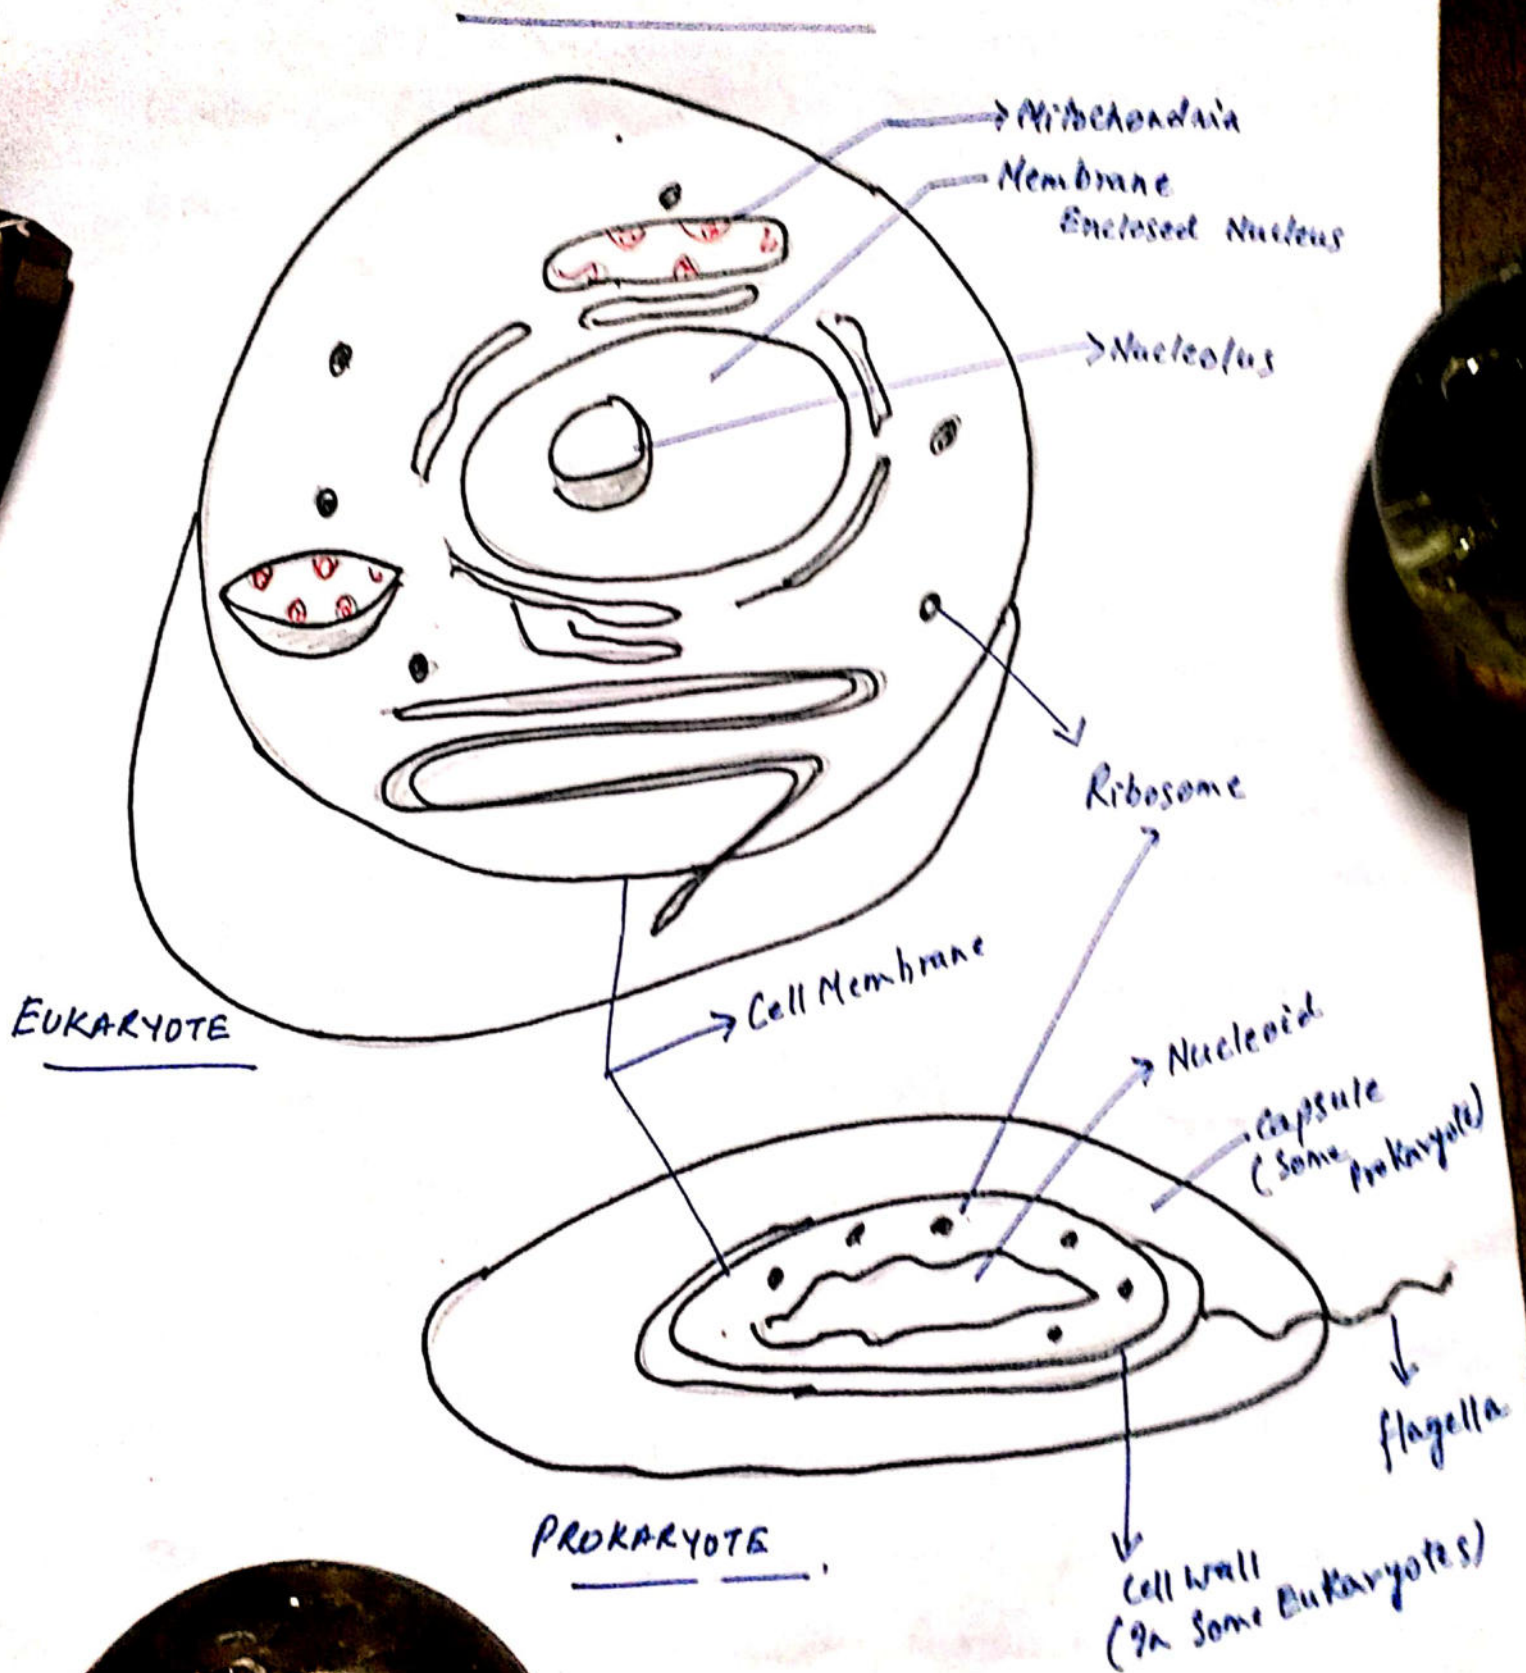 Mitochondria
Membrane
Enclosed Nucleus
Nucleolus
Ribosome
Cell Membrane
EUKARYOTE
Nucleoid
Capsule
(Some Prokaryote)
flagella
PROKARYOTE.
Cell Wall
(In Some Eukaryotes)